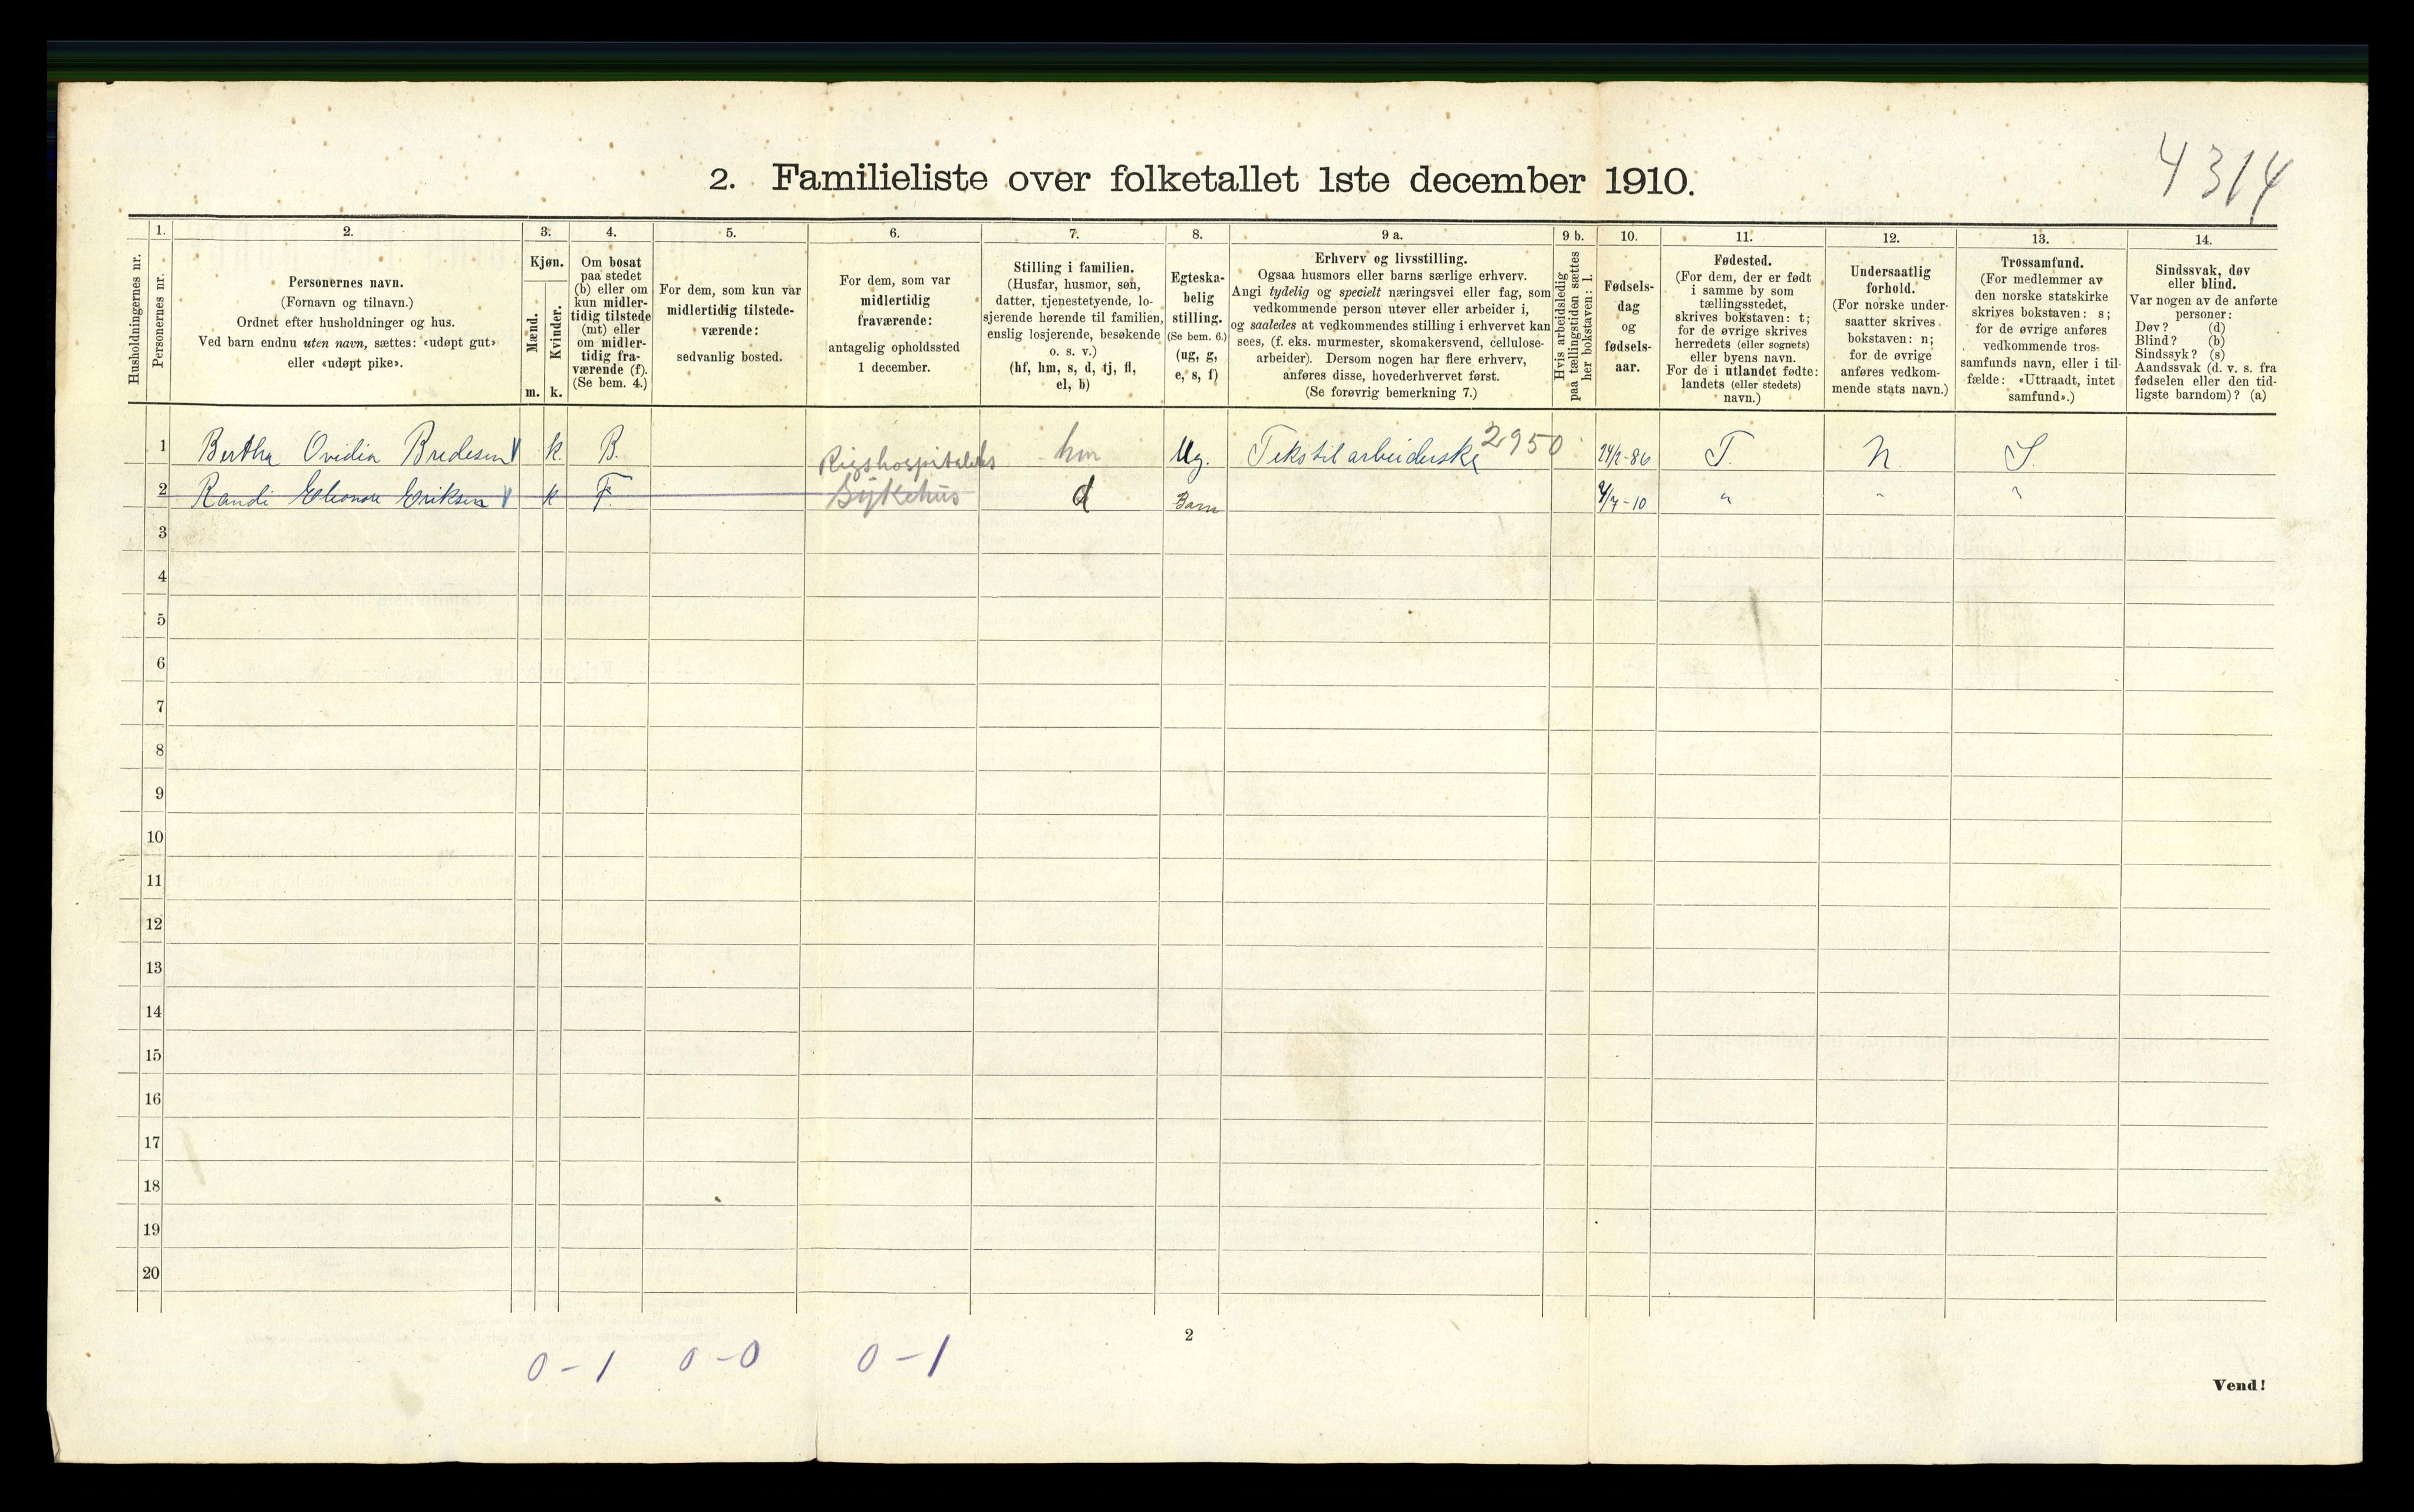 4314
2. Familieliste over folketallet 1ste december 1910.
Husholdningernes nr.
1.
Personernes nr.
2.
Personernes navn.
(Fornavn og tilnavn.)
Ordnet efter husholdninger og hus.
Ved barn endnu uten navn, sættes: «udøpt gut»
eller «udøpt pike».
3.
Kjøn.
Mænd.
Kvinder.
m. k.
4.
Om bosat
paa stedet
(b) eller om
kun midler-
tidig tilstede
(mt) eller
om midler-
tidig fra-
værende (f).
(Se bem. 4.)
5.
For dem, som kun var
midlertidig tilstede-
værende:
sedvanlig bosted.
6.
For dem, som var
midlertidig
fraværende:
antagelig opholdssted
1 december.
7.
Stilling i familien.
(Husfar, husmor, søn,
datter, tjenestetyende, lo-
sjerende hørende til familien,
enslig losjerende, besøkende
o. s. v.)
(hf, hm, s, d, tj, fl,
el, b)
8.
Egteska-
belig
stilling.
(Se bem. 6.)
(ug, g,
e, s, f)
9 a.
Erhverv og livsstilling.
Ogsaa husmors eller barns særlige erhverv.
Angi tydelig og specielt næringsvei eller fag, som
vedkommende person utøver eller arbeider i,
og saaledes at vedkommendes stilling i erhvervet kan
sees, (f. eks. murmester, skomakersvend, cellulose-
arbeider). Dersom nogen har flere erhverv,
anføres disse, hovederhvervet først.
(Se forøvrig bemerkning 7.)
9 b.
Hvis arbeidsledig
paa tællingstiden sættes
her bokstaven: l.
10.
Fødsels-
dag
og
fødsels-
aar.
11.
Fødested.
(For dem, der er født
i samme by som
tællingsstedet,
skrives bokstaven: t;
for de øvrige skrives
herredets (eller sognets)
eller byens navn.
For de i utlandet fødte:
landets (eller stedets)
navn.)
12.
Undersaatlig
forhold.
(For norske under-
saatter skrives
bokstaven: n;
for de øvrige
anføres vedkom-
mende stats navn.)
13.
Trossamfund.
(For medlemmer av
den norske statskirke
skrives bokstaven: s;
for de øvrige anføres
vedkommende tros-
samfunds navn, eller i til-
fælde: «Uttraadt, intet
samfund».)
14.
Sindssvak, døv
eller blind.
Var nogen av de anførte
personer:
Døv? (d)
Blind? (b)
Sindssyk? (s)
Aandssvak (d. v. s. fra
fødselen eller den tid-
ligste barndom)? (a)
1 Bertha Ovidia Bredesen k. B. hm Ug. Tekstilarbeiderske 2950 24/2-86 T. N. S.
2 Randi Eleonore Eriksen k F. Rigshospitalets Sykehus d Barn 4/7-10 " " "
3
4
5
6
7
8
9
10
11
12
13
14
15
16
17
18
19
20
2
0-1 0-0 0-1
Vend!